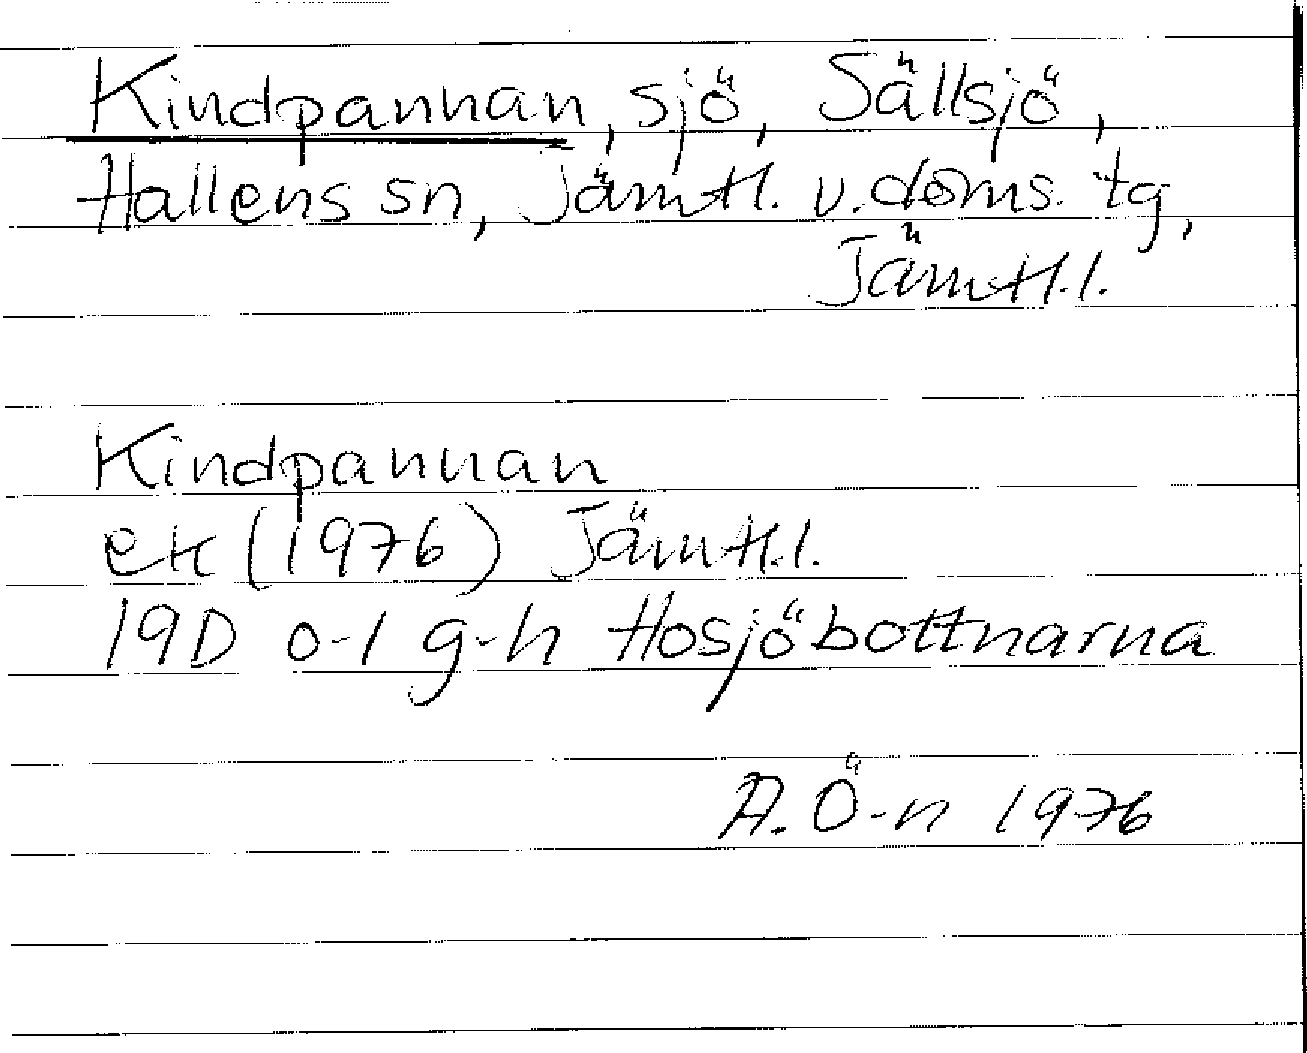 Kindpannan, sjö, Sällsjö,
Hallens sn, Jämtl. v. doms. tg,
Jämtl.l.
Kindpannan
ek (1976) Jämtl.l.
19D 0-1 g-h Hosjöbottnarna
A. Ö-n 1976